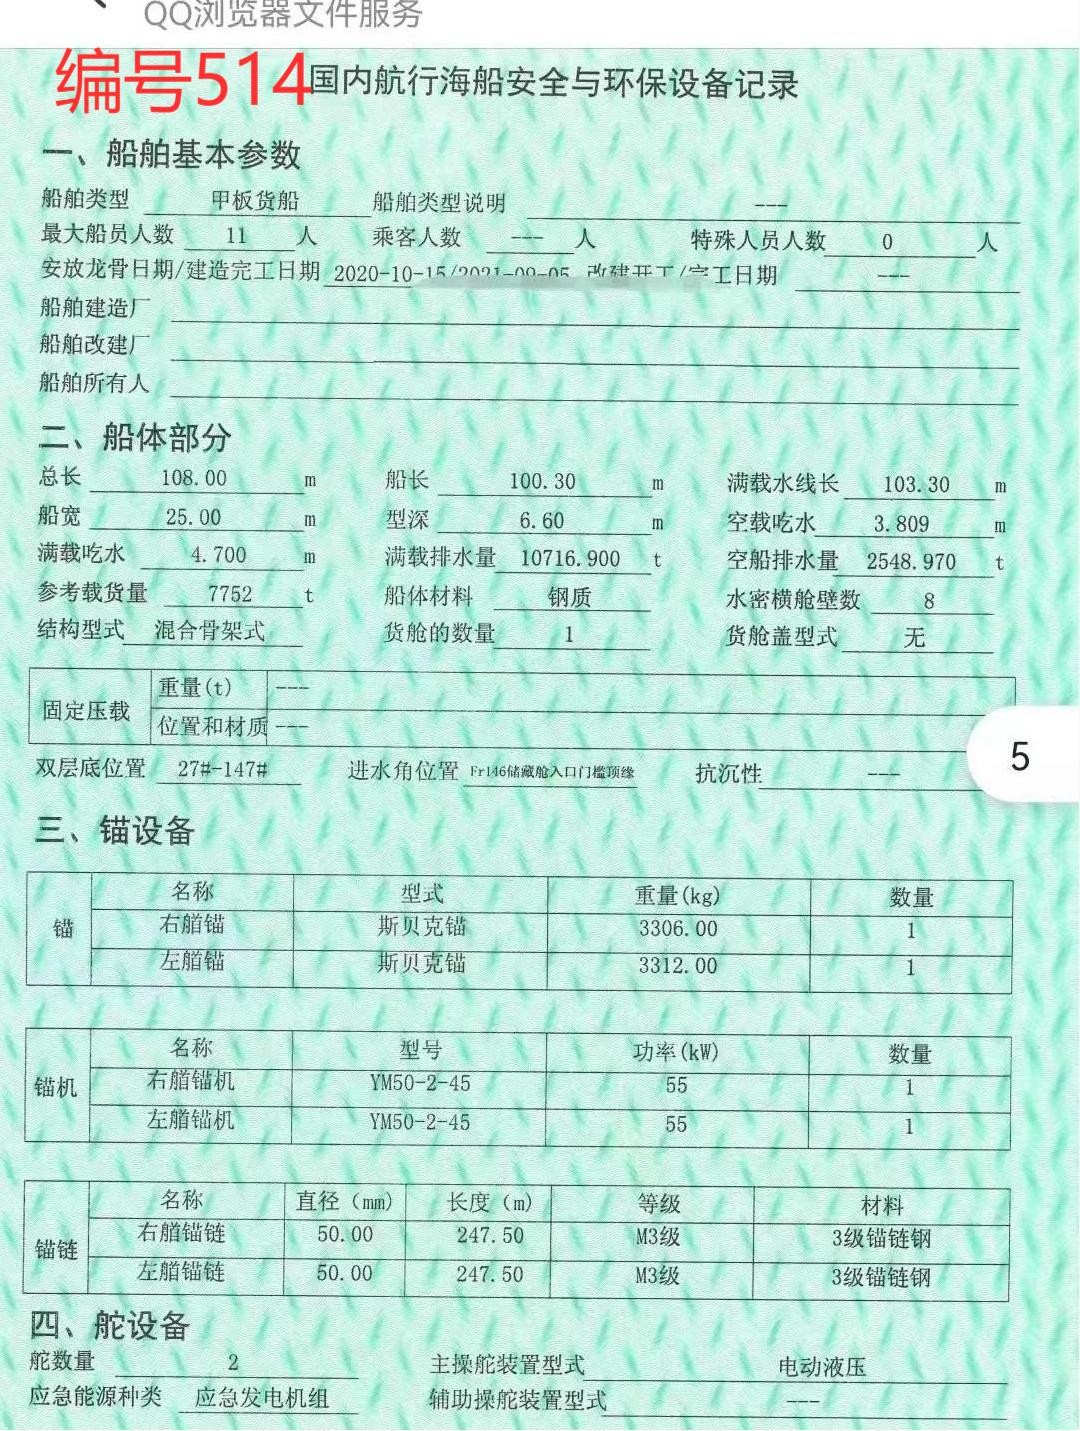 QQ浏览器文件服务
编号514
国内航行海船安全与环保设备记录
一、船舶基本参数
船舶类型 甲板货船 船舶类型说明 ---
最大船员人数 11 人 乘客人数 --- 人 特殊人员人数 0 人
安放龙骨日期/建造完工日期 2020-10-15/2021-09-05 改建开工/完工日期 ---
船舶建造厂
船舶改建厂
船舶所有人
二、船体部分
总长 108.00 m 船长 100.30 m 满载水线长 103.30 m
船宽 25.00 m 型深 6.60 m 空载吃水 3.809 m
满载吃水 4.700 m 满载排水量 10716.900 t 空船排水量 2548.970 t
参考载货量 7752 t 船体材料 钢质 水密横舱壁数 8
结构型式 混合骨架式 货舱的数量 1 货舱盖型式 无
固定压载 重量(t) ---
位置和材质 ---
双层底位置 27#-147# 进水角位置 Fr146储藏舱入口门槛顶缘 抗沉性 ---
5
三、锚设备
锚 名称 型式 重量(kg) 数量
右艏锚 斯贝克锚 3306.00 1
左艏锚 斯贝克锚 3312.00 1
锚机 名称 型号 功率(kW) 数量
右艏锚机 YM50-2-45 55 1
左艏锚机 YM50-2-45 55 1
锚链 名称 直径（mm） 长度（m） 等级 材料
右艏锚链 50.00 247.50 M3级 3级锚链钢
左艏锚链 50.00 247.50 M3级 3级锚链钢
四、舵设备
舵数量 2 主操舵装置型式 电动液压
应急能源种类 应急发电机组 辅助操舵装置型式 ---